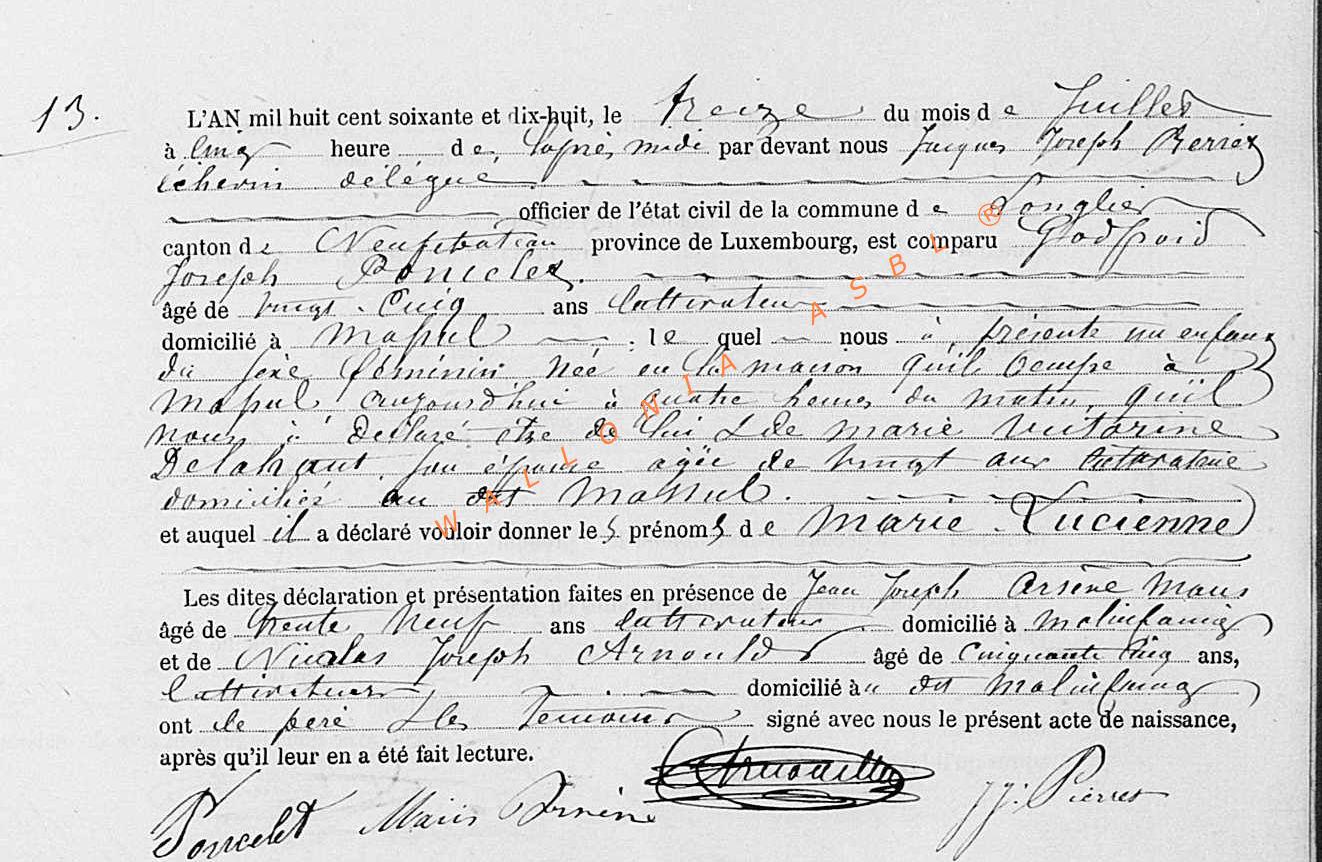 13.
L'AN mil huit cent soixante et dix-huit, le treize du mois de Juillet
à cinq heure de l'après midi par devant nous Jacques Joseph Pierret
échevin délégué
officier de l'état civil de la commune de Longlier
canton de Neufchateau province de Luxembourg, est comparu Godfroid
Joseph Poncelet
âgé de vingt-cinq ans cultivateur
domicilié à Massul : le quel nous à présenté un enfant
du sexe féminin née en la maison qu'il occupe à
Massul aujourd'hui à quatre heures du matin, qu'il
nous à déclaré être de lui & de marie victorine
Delahaut son épouse agée de vingt ans
domiciliés au dit Massul.
et auquel il a déclaré vouloir donner les prénoms de Marie Lucienne
Les dites déclaration et présentation faites en présence de Jean Joseph Arsène Maus
âgé de trente neuf ans cultivateur domicilié à molinfaing
et de Nicolas Joseph Arnould âgé de cinquante cinq ans,
cultivateur domicilié au dit Molinfaing
ont le père & les témoins signé avec nous le présent acte de naissance,
après qu'il leur en a été fait lecture.
Poncelet J.J. Pierret
WALLONIA ASBL ®